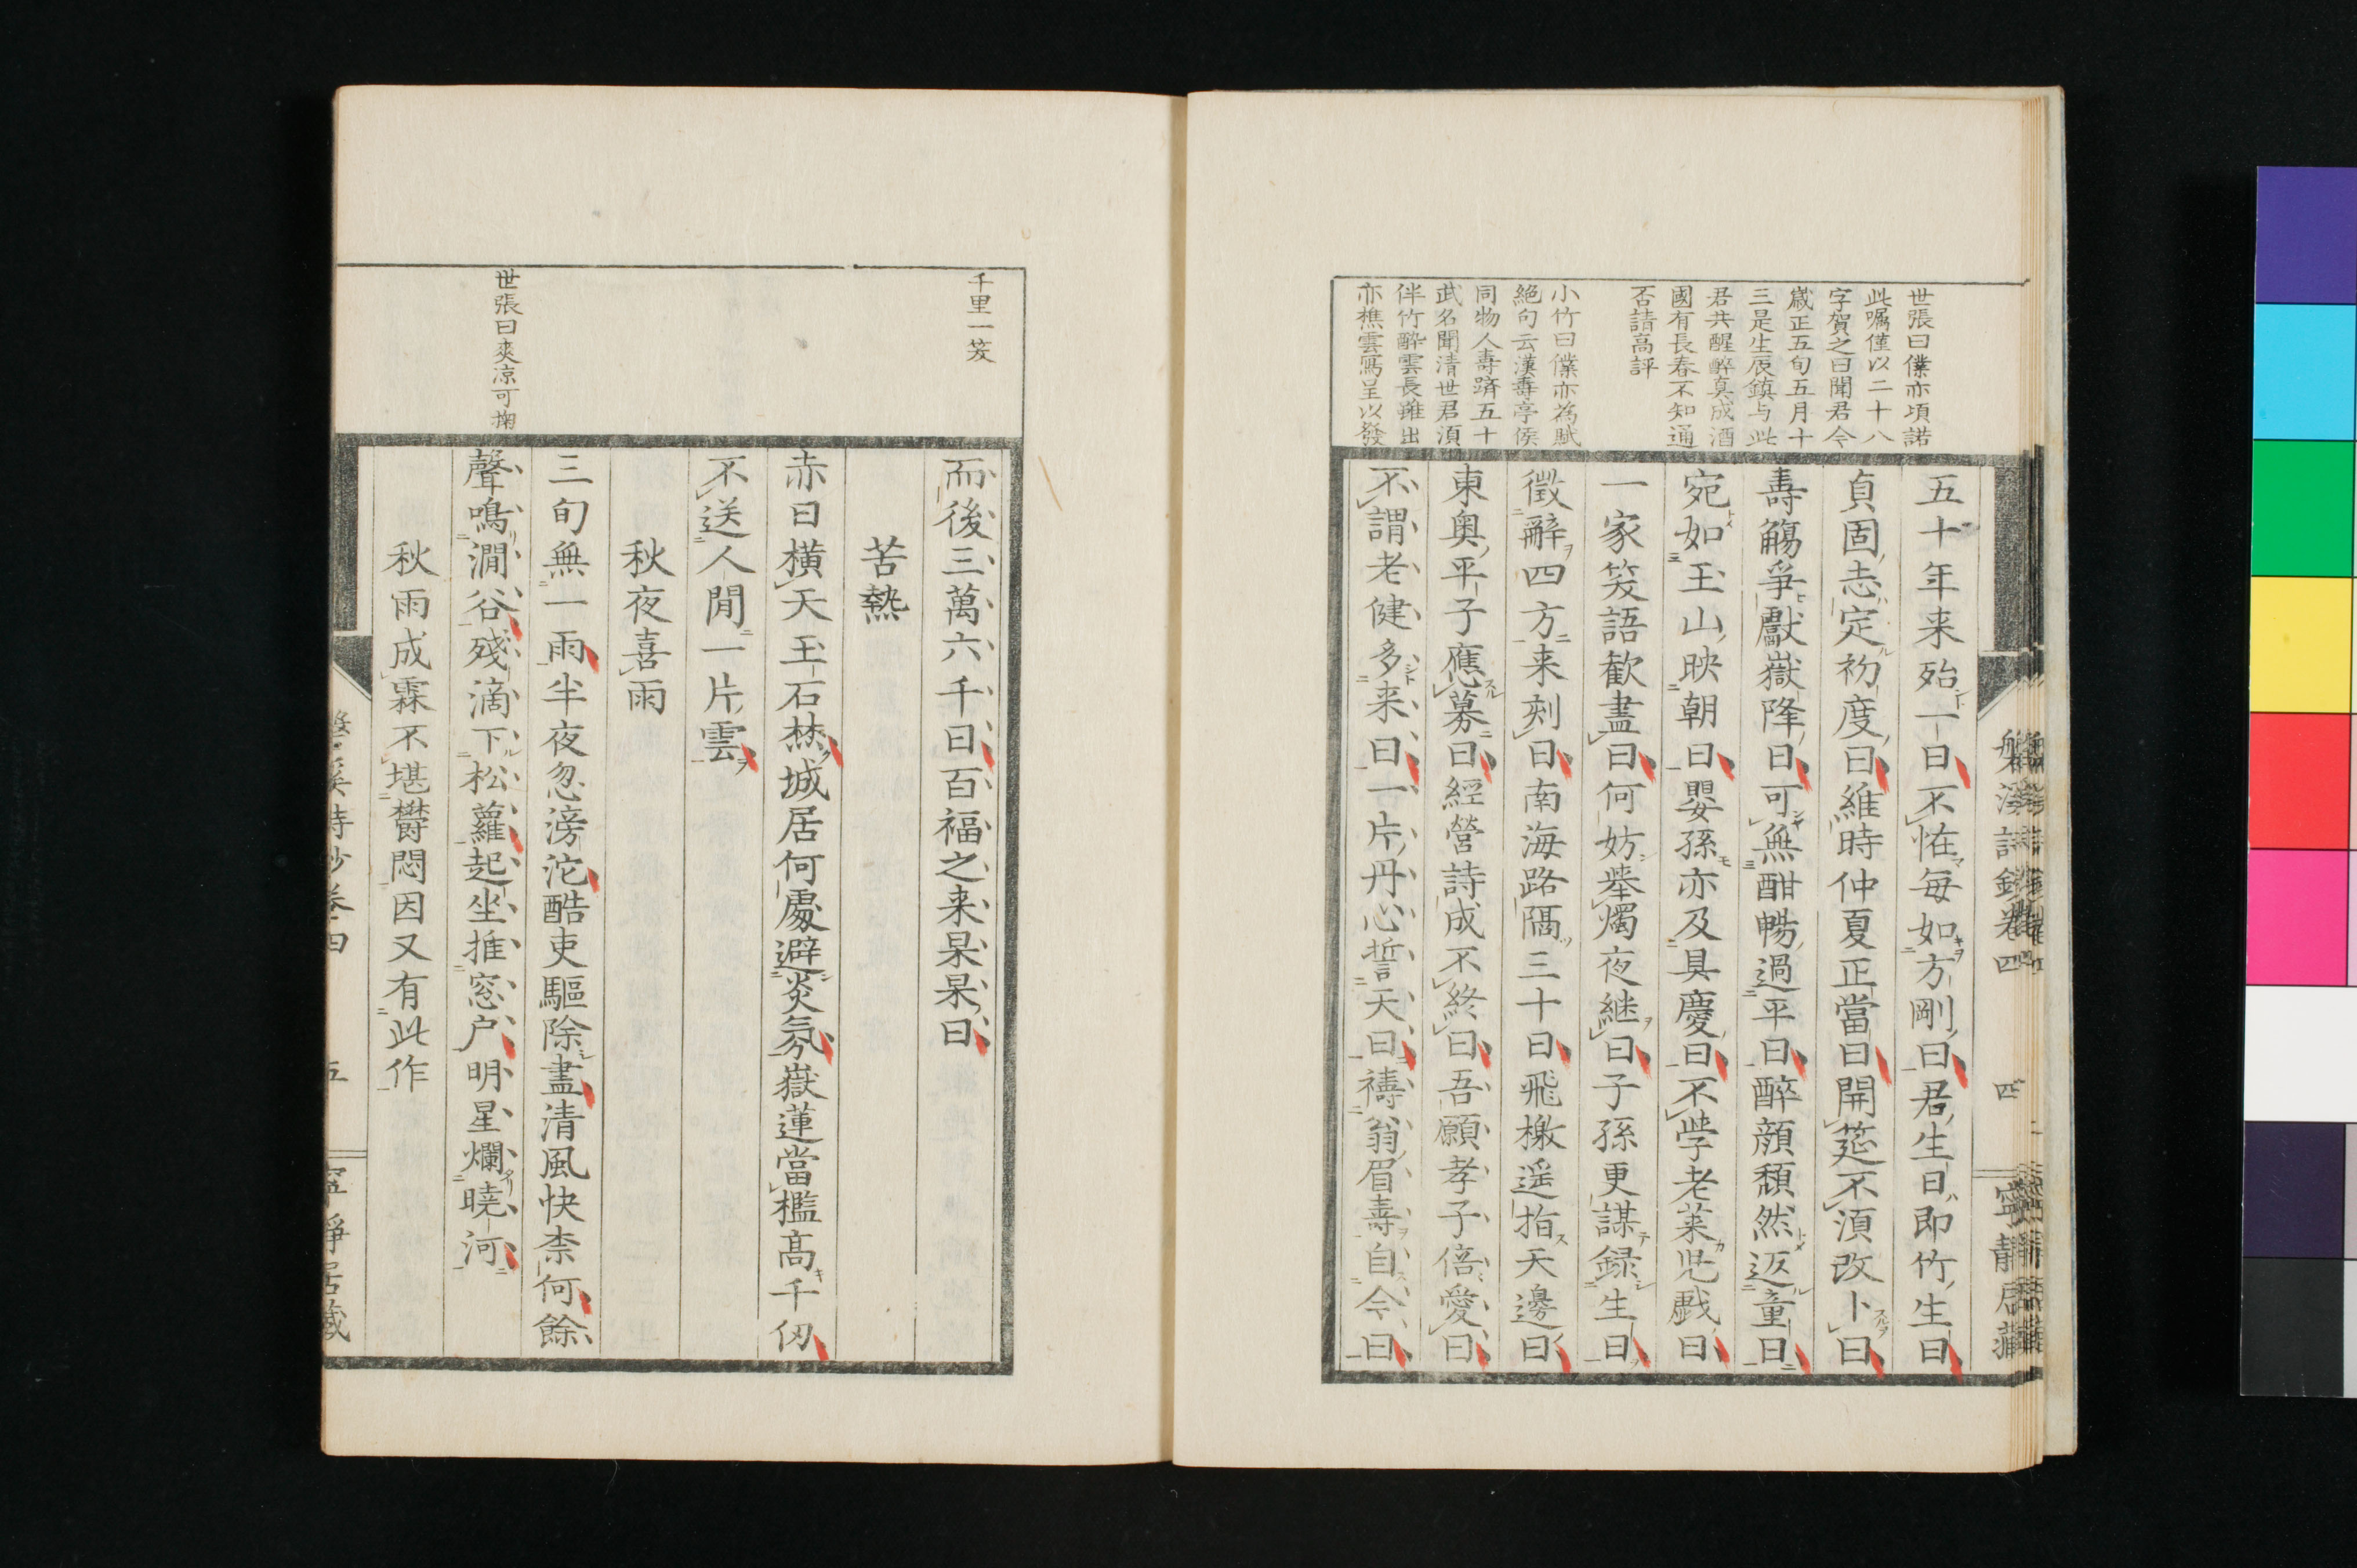 世張曰僕亦項諾
此囑僅以二十八
字賀之曰聞君今
歳正五旬五月十
三是生辰鎮与此
君共醒醉真成酒
國有長春不知通
否請高評
小竹曰僕亦為賦
絶句云漢壽亭侯
同物人壽躋五十
武名聞清世君須
伴竹酔雲長雖出
亦樵雲寫呈以發
五十年来殆一日不恠毎如方剛日君生日即竹生日
貞固志定初度日維時仲夏正當日開筵不須改卜日
壽觴爭獻嶽降日可無酣暢過平日醉顔頽然返童日
宛如玉山映朝日嬰孫亦及具慶日不學老莱児戯日
一家笑語歓盡日何妨擧燭夜継日子孫更謀録生日
徴辭四方来刻日南海路隔三十日飛檄遥指天邊日
東奥平子應募日經營詩成不終日吾願孝子倍愛日
不謂老健多来日一片丹心誓天日禱翁眉壽自今日
磐渓詩鈔巻四
四
寧静居蔵
千里一笑
世張曰爽凉可掬
而後三萬六千日百福之来杲杲日
苦熱
赤日横天玉石焚城居何處避炎氛嶽蓮當檻高千仭
不送人間一片雲
秋夜喜雨
三旬無一雨半夜忽滂沱酷吏驅除盡清風快柰何餘
聲鳴澗谷殘滴下松蘿起坐推窓户明星爛曉河
秋雨成霖不堪欝悶因又有此作
磐渓詩鈔巻四
五
寧静居蔵